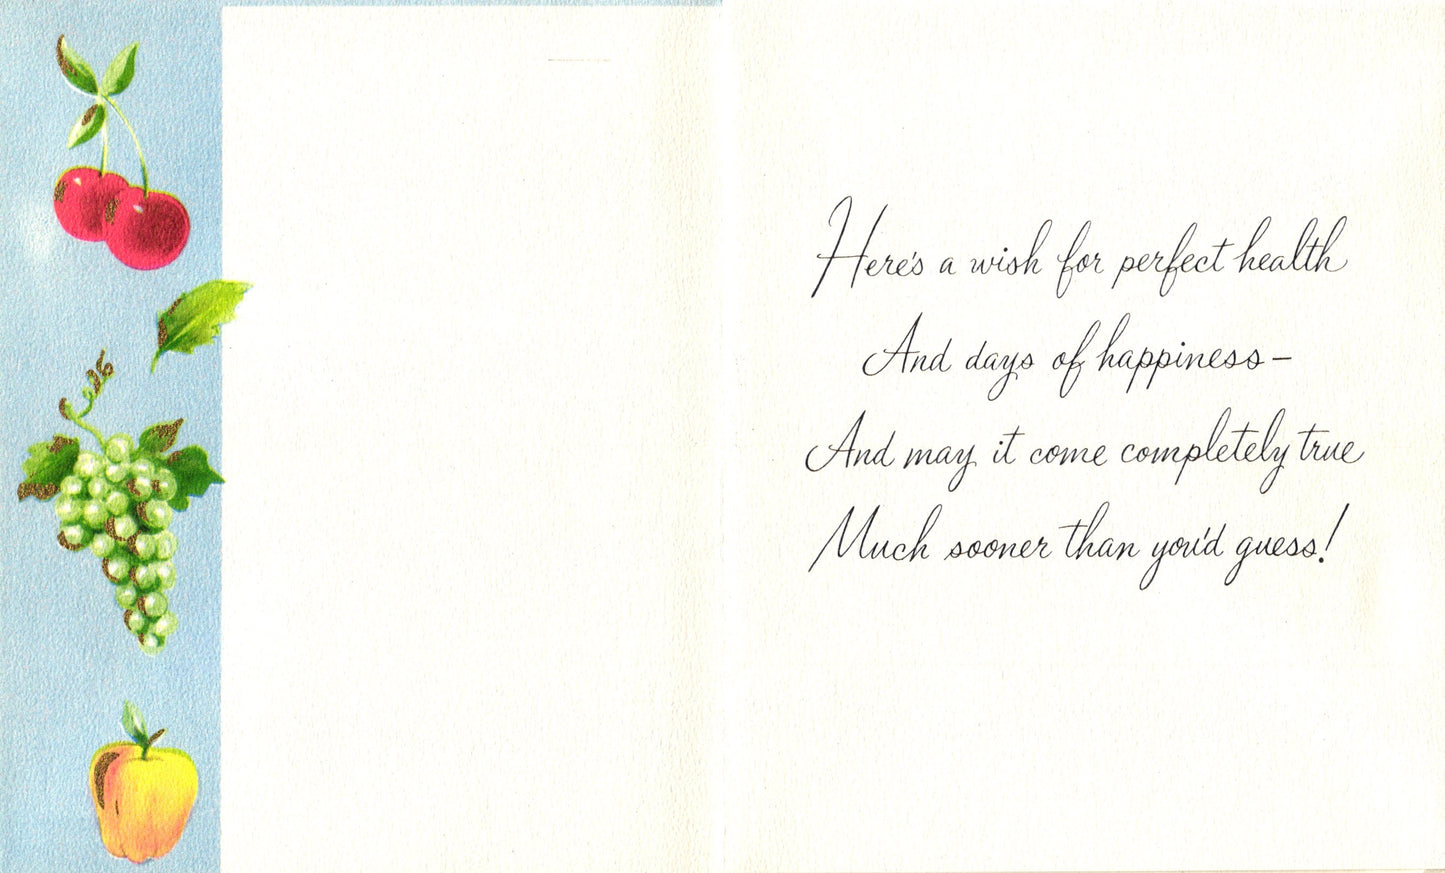 Here's a wish for perfect health
And days of happiness–
And may it come completely true
Much sooner than you'd guess!